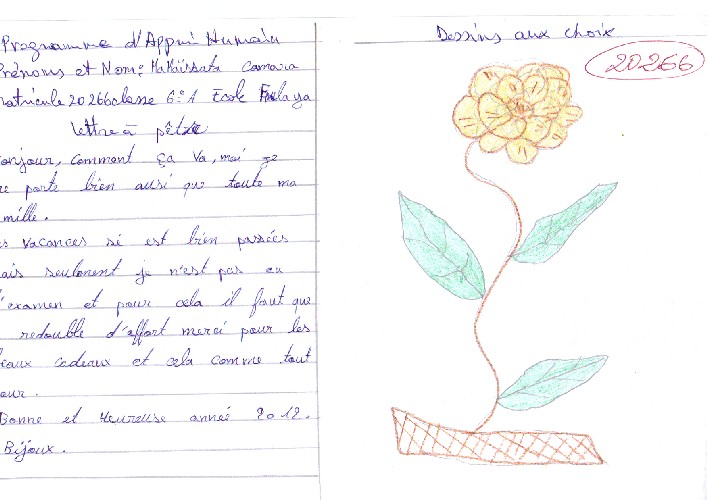 Programme d'Appui Humain
Prénoms et Nom: Camara
matricule 20266 classe 6è A Ecole
lettre à
Bonjour, Comment ça va, moi je
me porte bien ausi que toute ma
famille.
Les vacances si est bien passées
mais seulement je n'est pas eu
l'examen et pour cela il faut que
je redouble d'effort merci pour les
beaux cadeaux et cela comme tout
jour.
Bonne et Heureuse année 2012.
Bijoux.
Dessins aux choix
20266